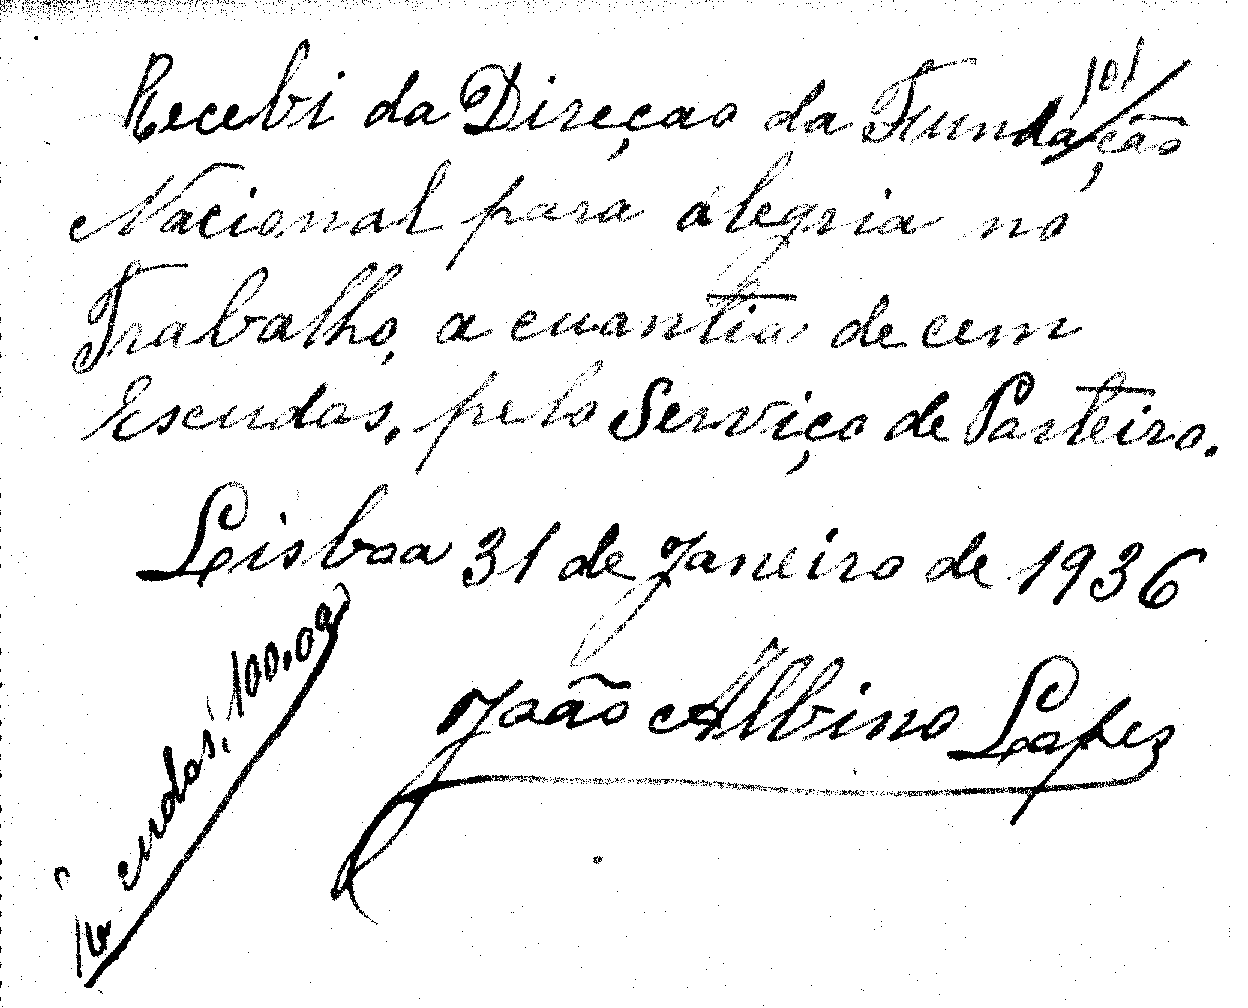 101/
Recebi da Direçao da Fundação
Nacional para alegria no
Trabalho, a cuantia de cem
Escudos, pelo Serviço de Porteiro.
Lisboa 31 de Janeiro de 1936
João Albino Lopes
100.00